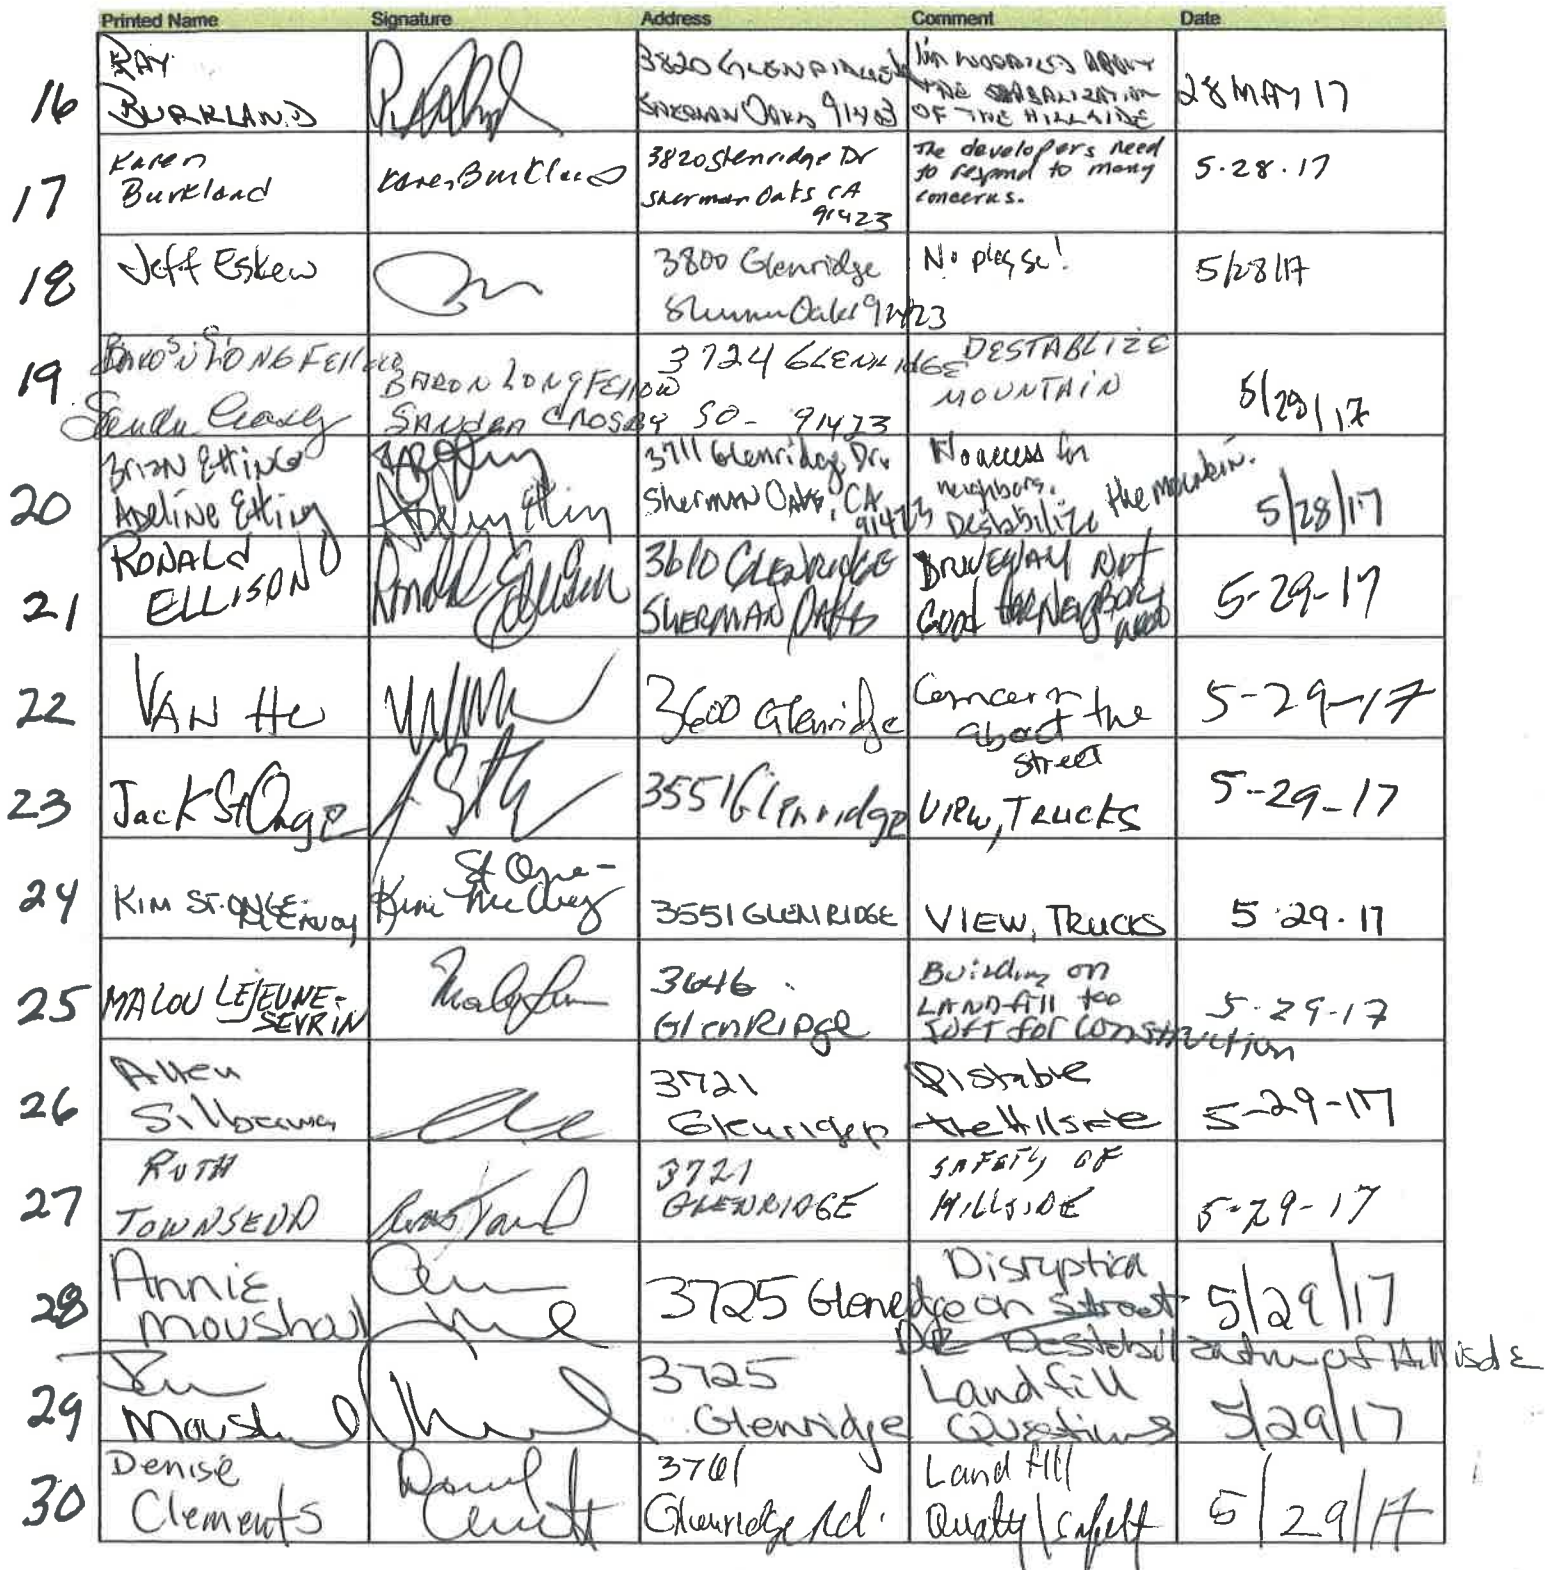 Printed Name Signature Address Comment Date
16 RAY BURKLAND 3820 GLENRIDGE SHERMAN OAKS 91403 I'm WORRIED ABOUT THE OF THE HILLSIDE 28 MAY 17
17 Karen Burkland Karen Burkland 3820 Glenridge Dr Sherman Oaks CA 91423 The developers need to respond to many concerns. 5-28-17
18 Jeff Eskew 3800 Glenridge Sherman Oaks 91423 No please! 5/28/17
19 BARON LONGFELLOW BARON LONGFELLOW SANDRA CROSBY 3724 GLENRIDGE SO- 91423 DESTABLIZE MOUNTAIN 5/29/17
20 BRIAN Etting ADELINE Etting 3711 Glenridge Dr. Sherman Oaks, CA 91423 No access for neighbors. Destabilize the mountain. 5/28/17
21 RONALD ELLISON Ronald Ellison 3610 GLENRIDGE SHERMAN OAKS DRIVEWAY NOT GOOD FOR NEIGHBOR 5-29-17
22 VAN HU 3600 Glenridge Concern about the street 5-29-17
23 Jack St Onge 3551 Glenridge VIEW, TRUCKS 5-29-17
24 KIM ST. ONGE- MCENVOY Kim St Onge- 3551 GLENRIDGE VIEW, TRUCKS 5-29-17
25 MALOU LEJEUNE- SEVRIN 3646 GlenRidge Building on LANDfill too SOFT for CONSTRUCTION 5-29-17
26 Allen 3721 Glenridge Distable the Hillside 5-29-17
27 RUTH TOWNSEND 3721 GLENRIDGE SAFETY OF HILLSIDE 5-29-17
28 Annie Moushal 3725 Glenridge Disruption on street Destabilization of Hillside 5/29/17
29 Moushal 3725 Glenridge Landfill Questions 5/29/17
30 Denise Clements 3761 Glenridge Rd. Land fill Quality/safety 5/29/17